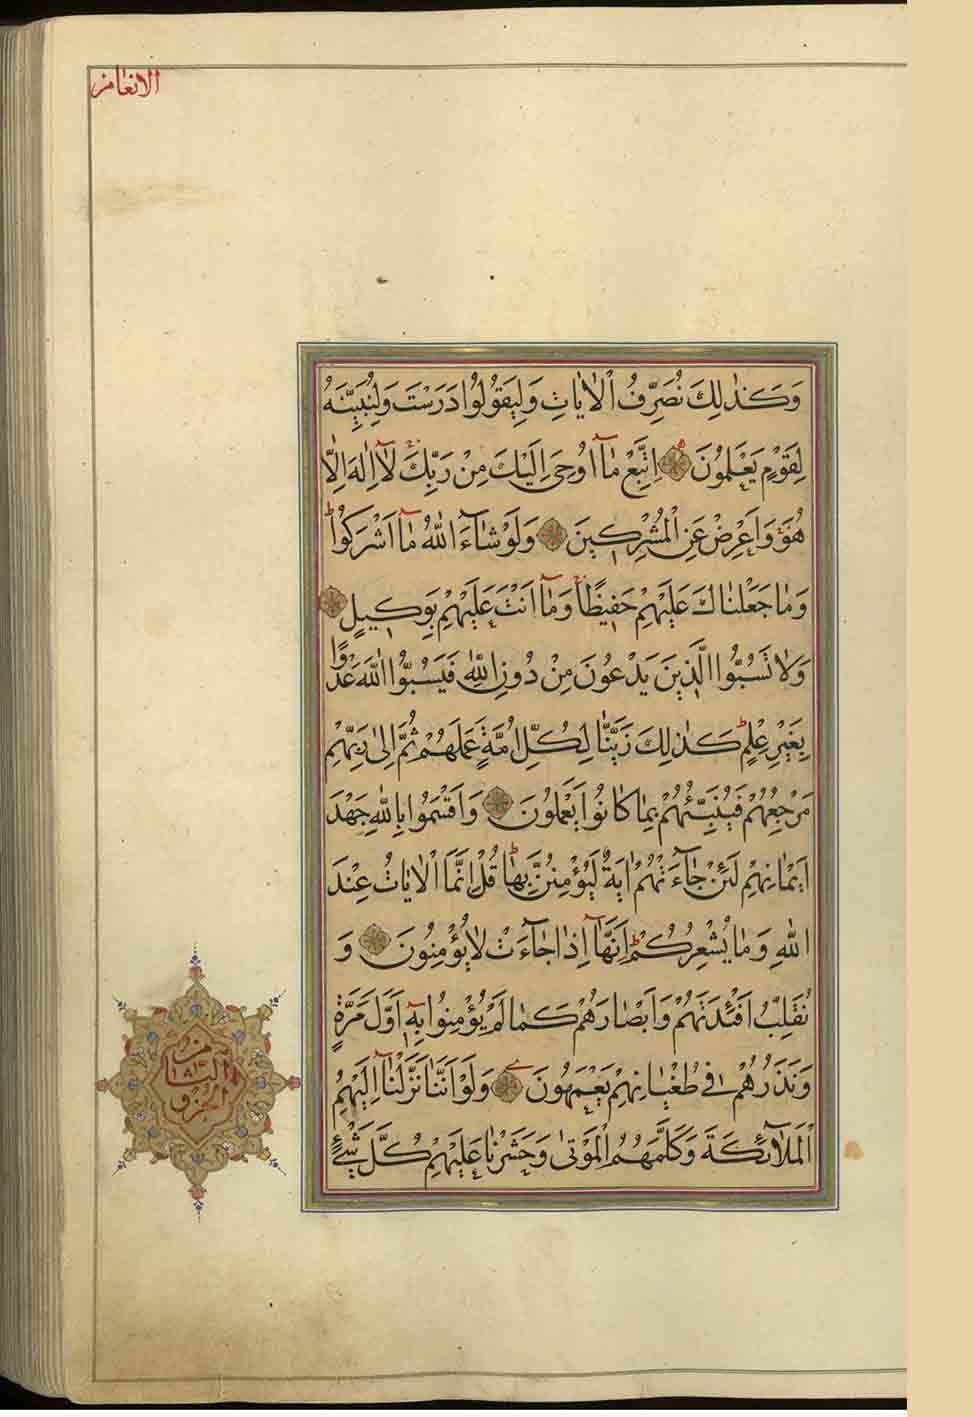 الانعام
وَكَذٰلِكَ نُصَرِّفُ الْاٰيَاتِ وَلِيَقُولُوا دَرَسْتَ وَلِنُبَيِّنَهُ
لِقَوْمٍ يَعْلَمُونَ اِتَّبِعْ مَٓا اُوحِىَ اِلَيْكَ مِنْ رَبِّكَ لَٓا اِلٰهَ اِلَّا
هُوَ وَاَعْرِضْ عَنِ الْمُشْرِكِينَ وَلَوْ شَٓاءَ اللّٰهُ مَٓا اَشْرَكُوا
وَمَا جَعَلْنَاكَ عَلَيْهِمْ حَفِيظًا وَمَٓا اَنْتَ عَلَيْهِمْ بِوَكِيلٍ
وَلَا تَسُبُّوا الَّذِينَ يَدْعُونَ مِنْ دُونِ اللّٰهِ فَيَسُبُّوا اللّٰهَ عَدْوًا
بِغَيْرِ عِلْمٍ كَذٰلِكَ زَيَّنَّا لِكُلِّ اُمَّةٍ عَمَلَهُمْ ثُمَّ اِلٰى رَبِّهِمْ
مَرْجِعُهُمْ فَيُنَبِّئُهُمْ بِمَا كَانُوا يَعْمَلُونَ وَاَقْسَمُوا بِاللّٰهِ جَهْدَ
اَيْمَانِهِمْ لَئِنْ جَٓاءَتْهُمْ اٰيَةٌ لَيُؤْمِنُنَّ بِهَا قُلْ اِنَّمَا الْاٰيَاتُ عِنْدَ
اللّٰهِ وَمَا يُشْعِرُكُمْ اَنَّهَٓا اِذَا جَٓاءَتْ لَا يُؤْمِنُونَ وَ
نُقَلِّبُ اَفْئِدَتَهُمْ وَاَبْصَارَهُمْ كَمَا لَمْ يُؤْمِنُوا بِهِٓ اَوَّلَ مَرَّةٍ
وَنَذَرُهُمْ فِى طُغْيَانِهِمْ يَعْمَهُونَ وَلَوْ اَنَّنَا نَزَّلْنَٓا اِلَيْهِمُ
الْمَلَٓائِكَةَ وَكَلَّمَهُمُ الْمَوْتٰى وَحَشَرْنَا عَلَيْهِمْ كُلَّ شَىْءٍ
الجزو
الثامن